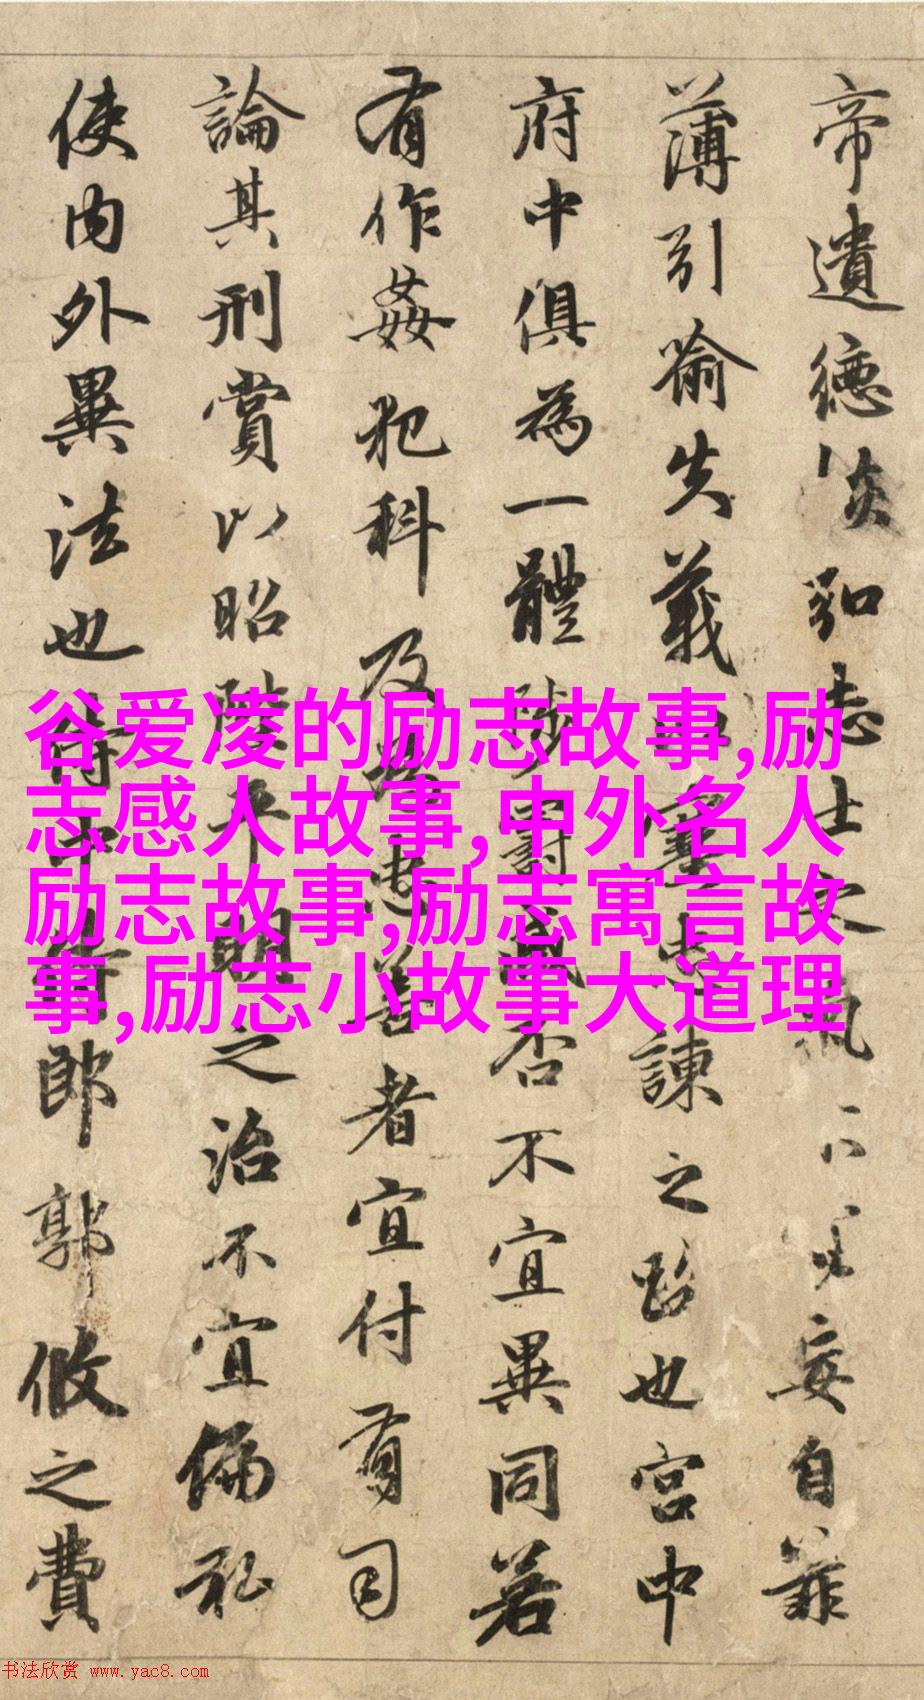 帝遺德恢弘志士之氣不宜妄自菲
薄引喻失義以塞忠諫之路也宮中
府中俱為一體陟罰臧否不宜異同若
有作姦犯科及為忠善者宜付有司
論其刑賞以昭陛平明之治不宜偏私
使內外異法也侍中侍郎郭攸之費
谷爱凌的励志故事,励
志感人故事,中外名人
励志故事,励志寓言故
事,励志小故事大道理
书法欣赏 www.yac8.com